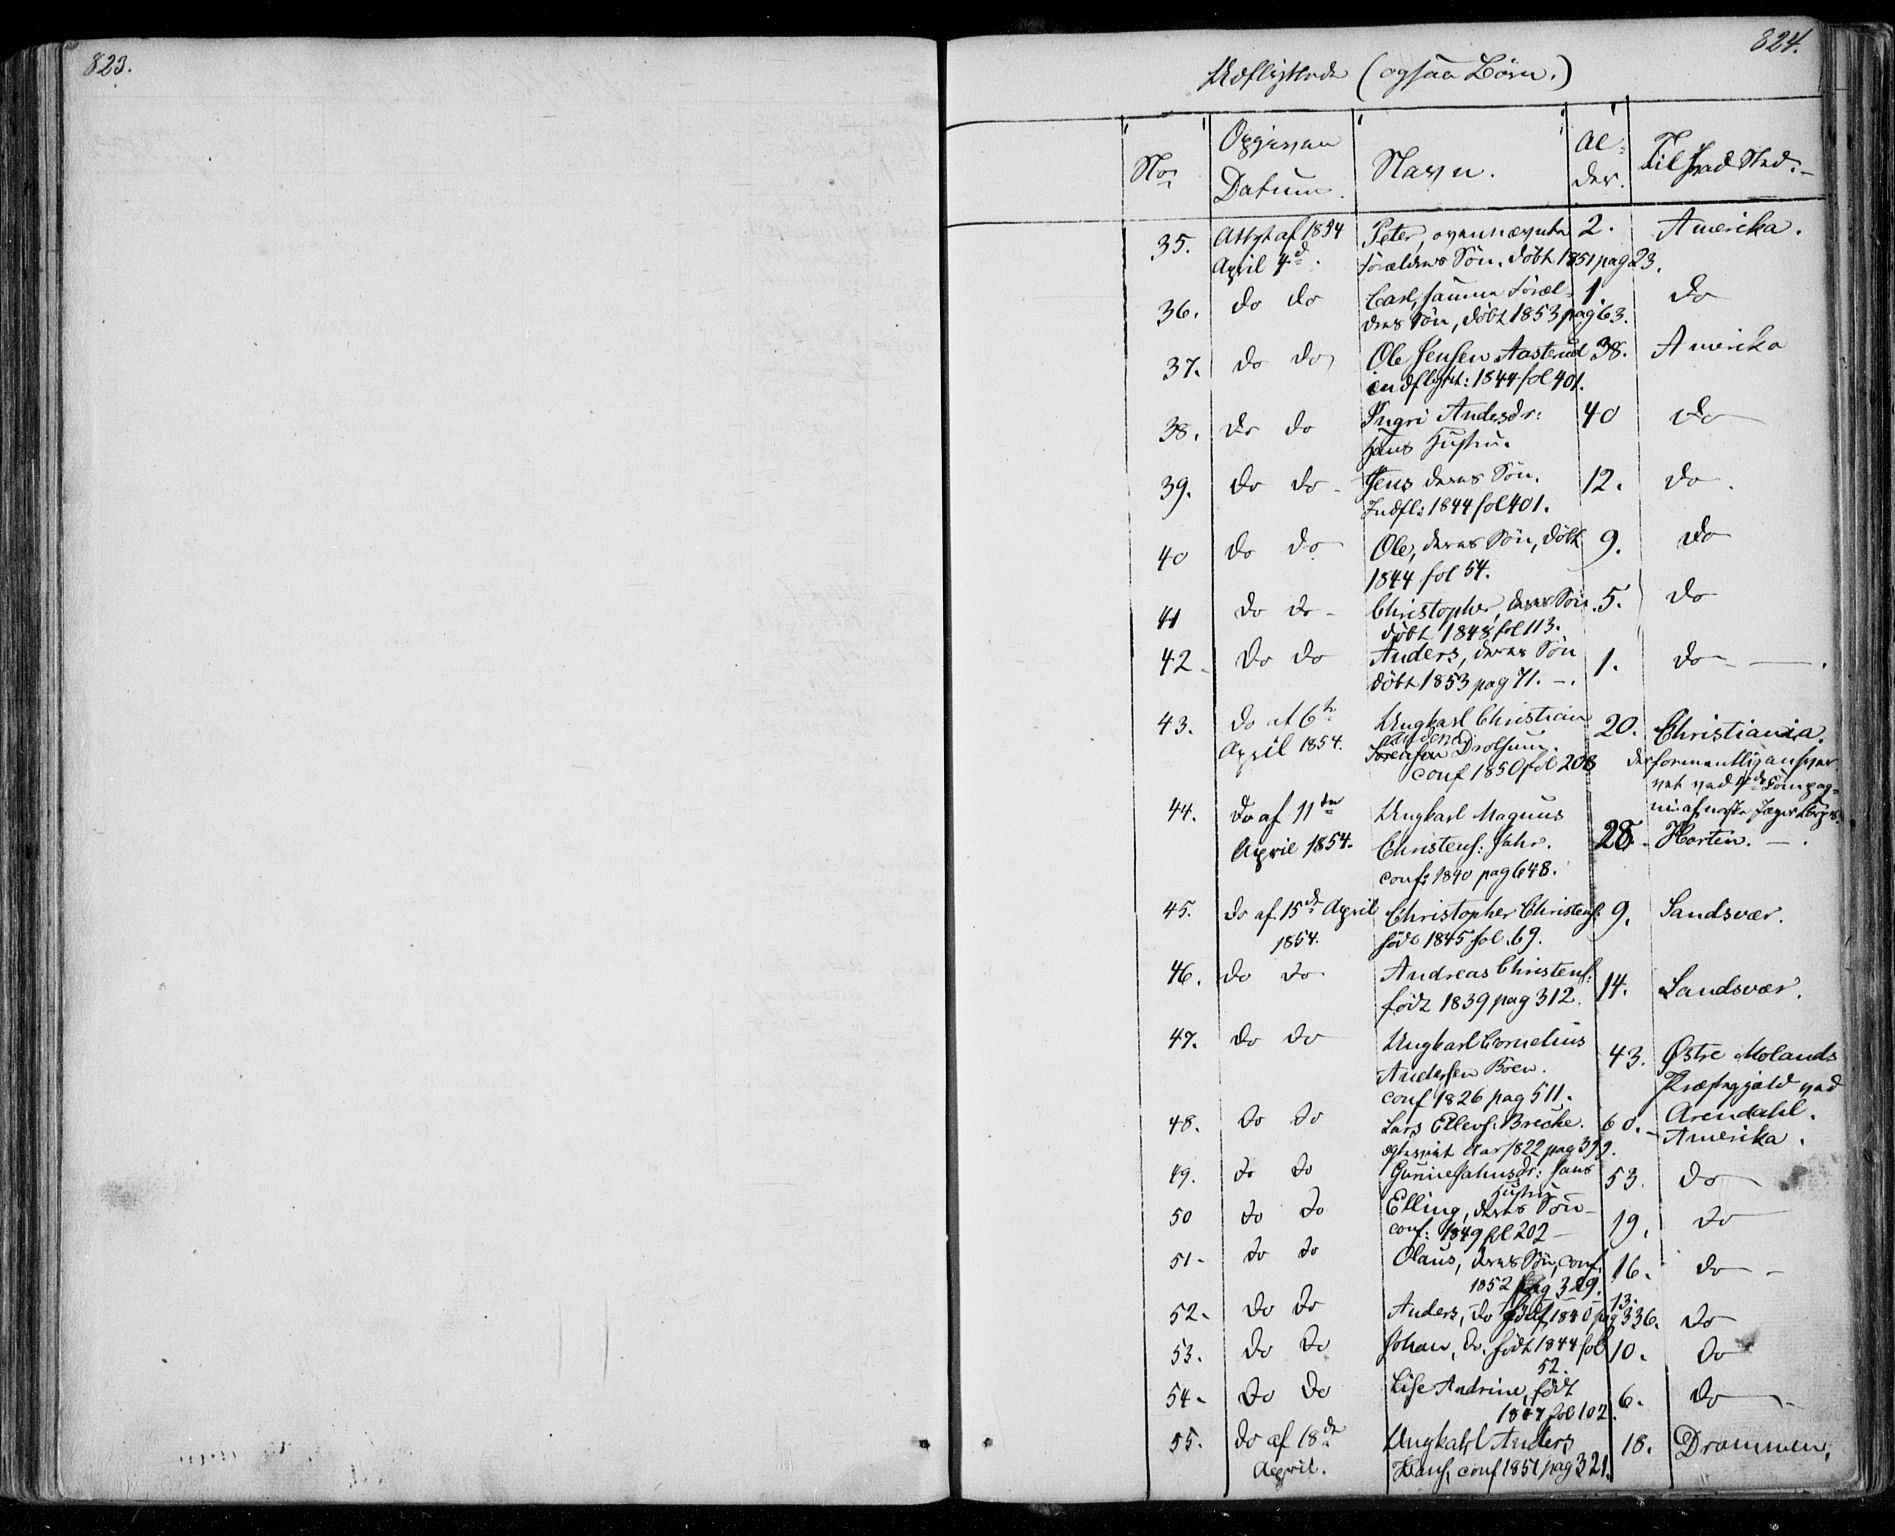 823.
824.
Udflyttede (ogsaa Börn.)
No
Opgiven
Datum.
Navn.
Al-
der.
Til hvad Sted.
35. Attest af 1854 Peter, ovennævnte 2. Amerika.
April 4d. Forældres Sön. döbt 1851 pag 23.
36. do do Carl, samme Foræl- 1. do
dres Sön, döbt 1853 pag 63.
37. do do Ole Jensen Aasterud 38. Amerika
indflytt: 1844 fol 401.
38. do do Ingri Andersdr: 40 do
hans Hustru.
39. do do Jens deres Sön. 12. do.
Indfl: 1844 fol 401.
40 do do Ole, deres Sön, döbt 9. do
1844 fol 54.
41 do do Christopher, deres Sön. 5. do
döbt 1848 fol 113.
42 do do Anders, deres Sön 1. do
döbt 1853 pag 71.
43. do af 6te Ungkarl Christian 20. Christiania.
April 1854. Sörensen Drolsum.
conf 1850 fol 208
der formentlig
ved Compag-
ni af norske Jæger Corps.
44. do af 11te Ungkarl Magnus
April 1854. Christens: Fahr. 28. Horten.
conf: 1840 pag 648.
45. do af 15de April Christopher Christens: 9. Sandsvær.
1854. föd 1845 fol. 69.
46. do do Andreas Christens: 14. Sandsvær.
född 1839 pag 312.
47. do do Ungkarl Cornelius 43. Østre Molands
Andersen Böen. Præstegjeld ved
conf 1826 pag 511. Arendahl.
48. do do Lars Ellevs: Brecke. 60. Amerika.
ægteviet Aar 1822 pag 399.
49. do do Gunnild Jahnsdr: hans 53. do
Hustru
50 do do Elling, deres Sön 19. do
conf: 1849 fol 202
51 do do Olaus, deres Sön, conf. 16. do
1852 pag 329.
52. do do Anders, do född 1840 pag 336. 13. do
53. do do Johan, do. född 1844 fol 10. do
52.
54 do do Lise Andrine, född 6. do
1847 fol 102.
55. do af 18de Ungkarl Anders 18. Drammen.
April. Hans, conf 1851 pag 321.